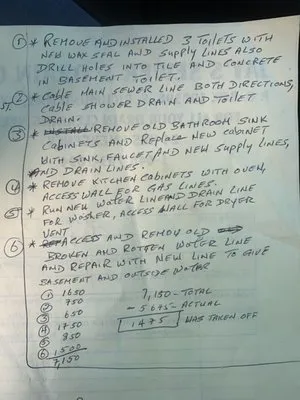 ① * REMOVE AND INSTALLED 3 TOILETS WITH
NEW WAX SEAL AND SUPPLY LINES ALSO
DRILL HOLES INTO TILE AND CONCRETE
IN BASEMENT TOILET.
② * CABLE MAIN SEWER LINE BOTH DIRECTIONS,
ST.
CABLE SHOWER DRAIN AND TOILET
DRAIN.
③ * INSTALL REMOVE OLD BATHROOM SINK
CABINETS AND REPLACE NEW CABINET
WITH SINK, FAUCET AND NEW SUPPLY LINES,
AND DRAIN LINES.
④ * REMOVE KITCHEN CABINETS WITH OVEN,
ACCESS WALL FOR GAS LINES.
⑤ * RUN NEW WATER LINE AND DRAIN LINE
FOR WASHER, ACCESS WALL FOR DRYER
VENT
⑥ * ACCESS AND REMOV OLD
BROKEN AND ROTTEN WATER LINE
AND REPAIR WITH NEW LINE TO GIVE
BASEMENT AND OUTSIDE WATER
① 1650
② 750
③ 650
④ 1750
⑤ 850
⑥ 1500
7,150
7,150 - TOTAL
- 5675 - ACTUAL
1475 WAS TAKEN OFF